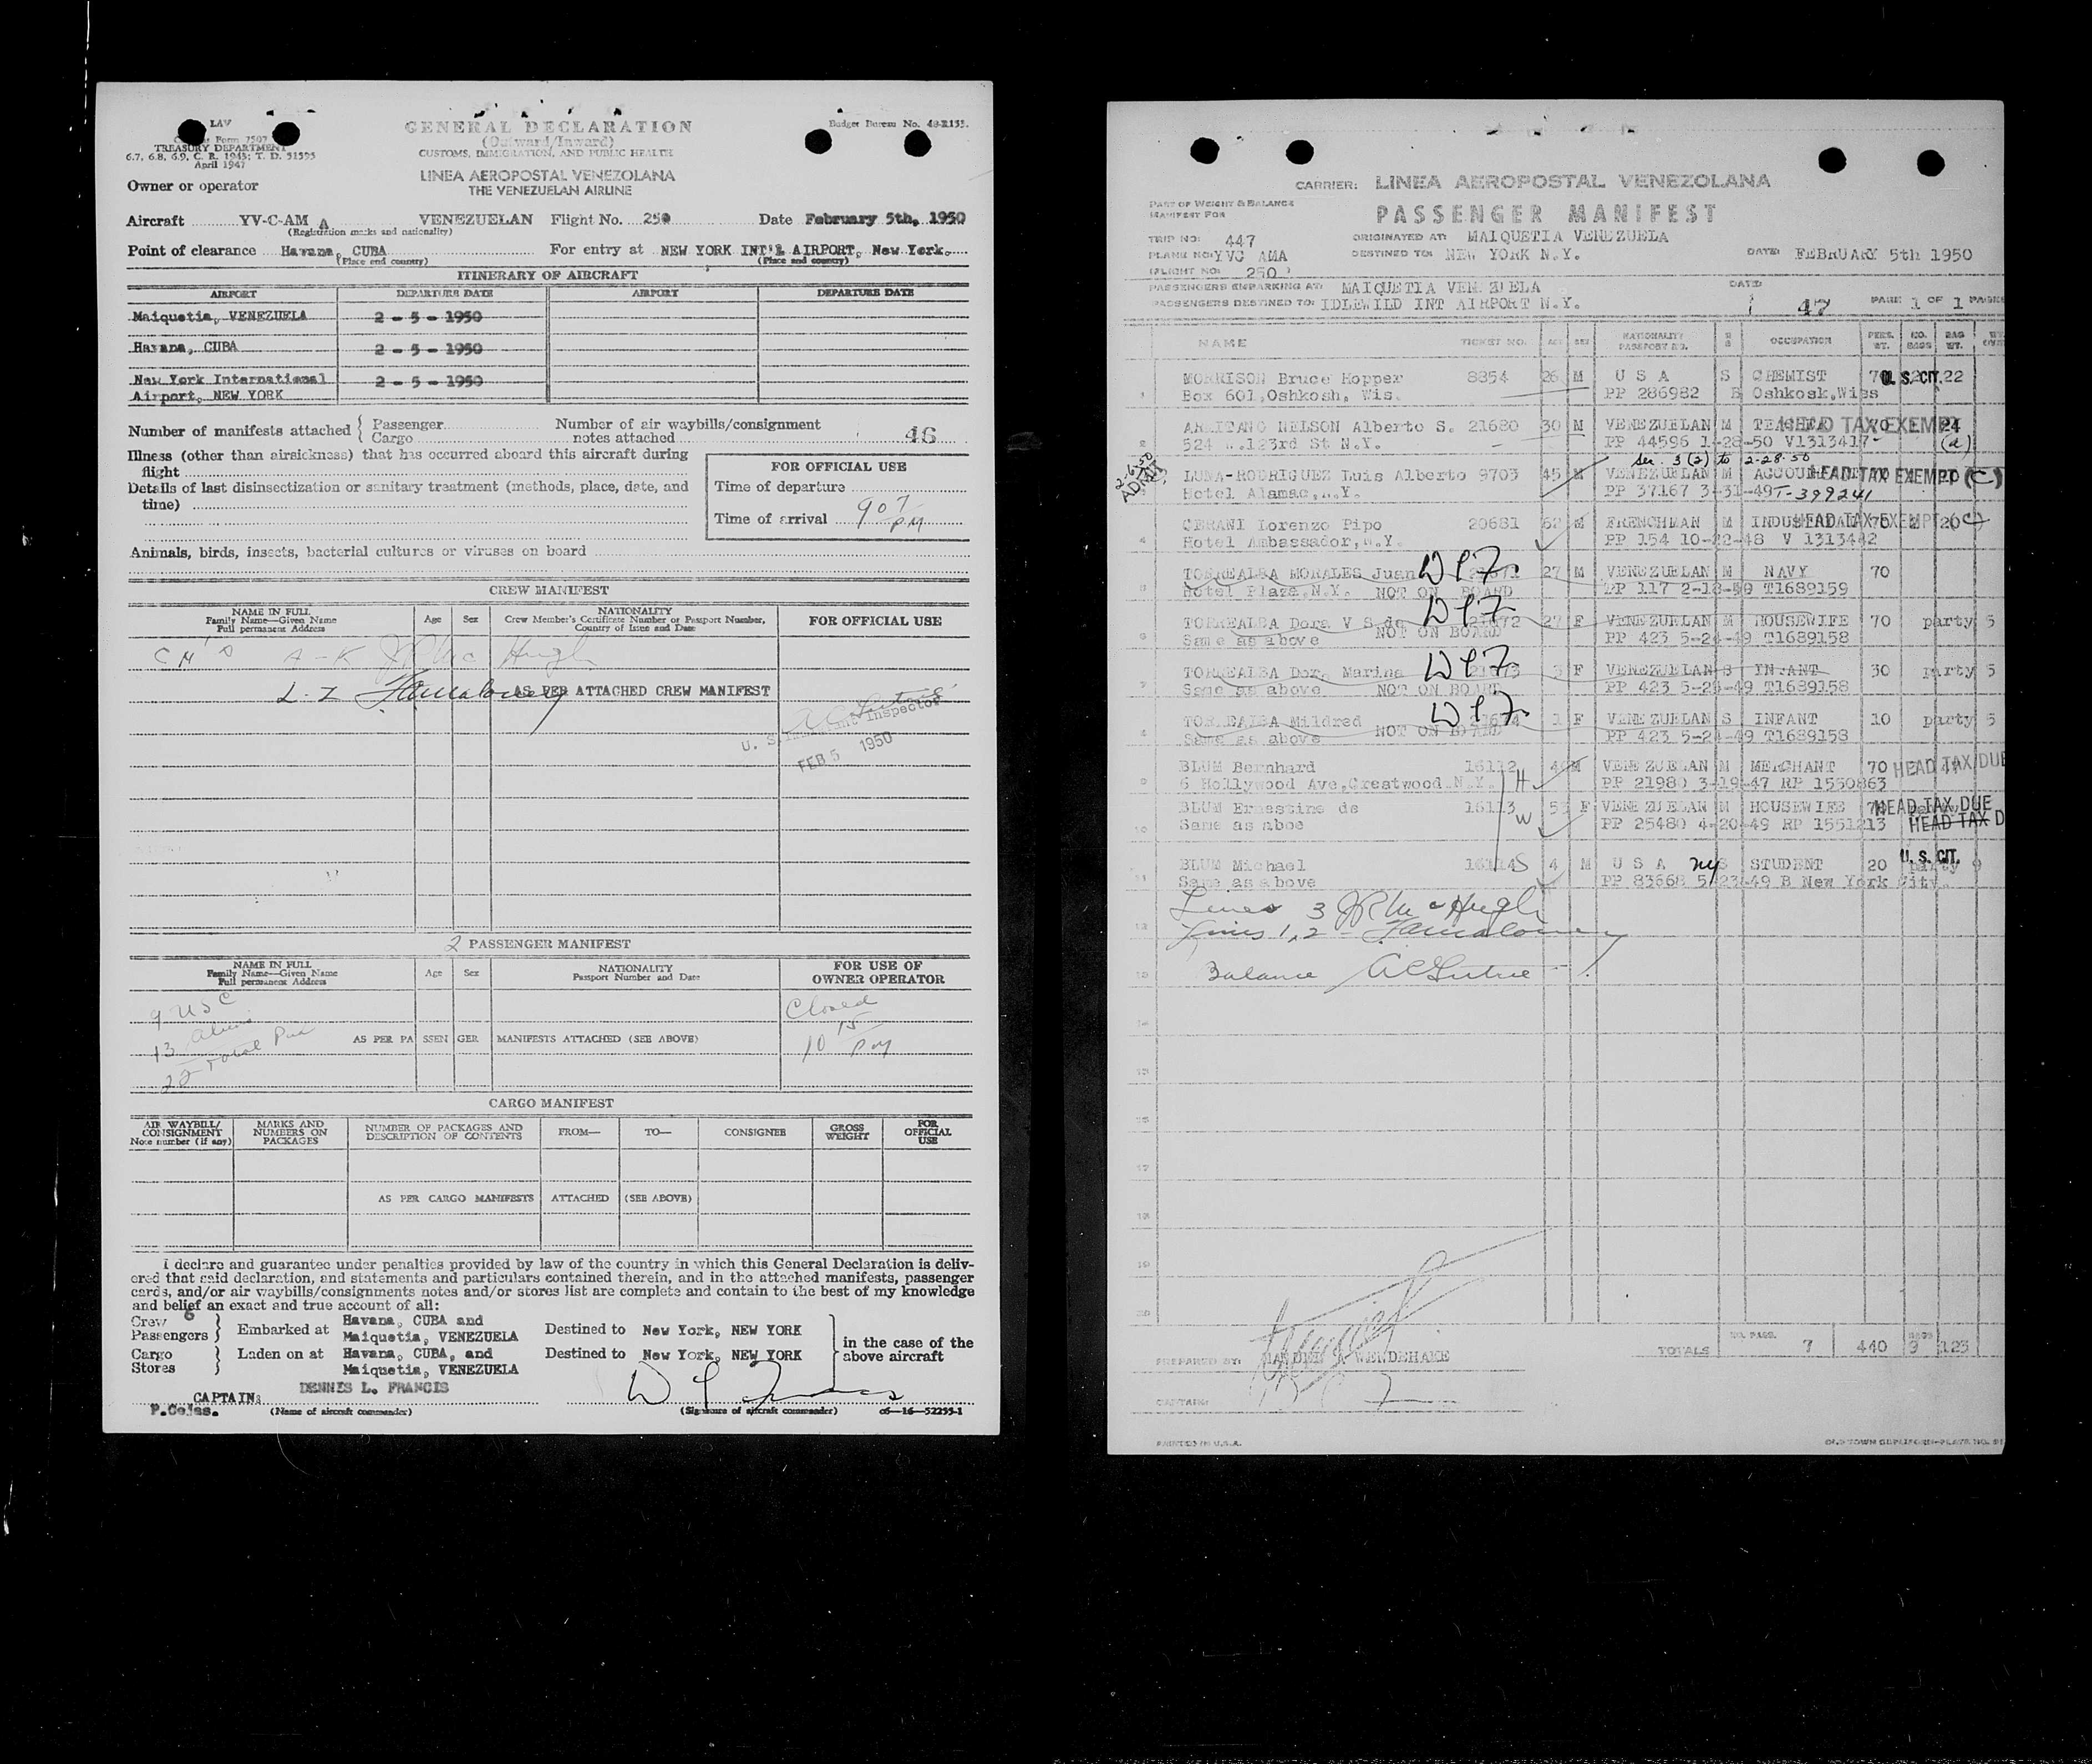 LAV
Form 7507
TREASURY DEPARTMENT
6.7, 6.8, 6.9, C. R. 1943; T. D. 51595
April 1947
GENERAL DECLARATION
(Outward/Inward)
CUSTOMS, IMMIGRATION, AND PUBLIC HEALTH
Budget Bureau No. 48-R155.
LINEA AEROPOSTAL VENEZOLANA
THE VENEZUELAN AIRLINE
Owner or operator
Aircraft YV-C-AM A VENEZUELAN Flight No. 250 Date February 5th, 1950
(Registration marks and nationality)
Point of clearance Havana, CUBA For entry at NEW YORK INT'L AIRPORT, New York.
(Place and country) (Place and country)
ITINERARY OF AIRCRAFT
AIRPORT DEPARTURE DATE AIRPORT DEPARTURE DATE
Maiquetia, VENEZUELA 2 - 5 - 1950
Havana, CUBA 2 - 5 - 1950
New York International 2 - 5 - 1950
Airport, NEW YORK
Number of manifests attached { Passenger Number of air waybills/consignment
Cargo notes attached 46
Illness (other than airsickness) that has occurred aboard this aircraft during
flight
Details of last disinsectization or sanitary treatment (methods, place, date, and
time)
FOR OFFICIAL USE
Time of departure
Time of arrival 907 PM
Animals, birds, insects, bacterial cultures or viruses on board
CREW MANIFEST
NAME IN FULL
Family Name—Given Name
Full permanent Address
Age Sex
NATIONALITY
Crew Member's Certificate Number or Passport Number,
Country of Issue and Date
FOR OFFICIAL USE
A-K J P McHugh
L-Z
AS PER ATTACHED CREW MANIFEST
U. S. Immigrant Inspector
FEB 5 1950
2 PASSENGER MANIFEST
NAME IN FULL
Family Name—Given Name
Full permanent Address
Age Sex
NATIONALITY
Passport Number and Date
FOR USE OF
OWNER OPERATOR
9 USC
13 aliens
22 Total Pax
Closed
10 15 PM
AS PER PASSENGER MANIFESTS ATTACHED (SEE ABOVE)
CARGO MANIFEST
AIR WAYBILL/
CONSIGNMENT
Note number (if any)
MARKS AND
NUMBERS ON
PACKAGES
NUMBER OF PACKAGES AND
DESCRIPTION OF CONTENTS
FROM— TO— CONSIGNEE
GROSS
WEIGHT
FOR
OFFICIAL
USE
AS PER CARGO MANIFESTS ATTACHED (SEE ABOVE)
I declare and guarantee under penalties provided by law of the country in which this General Declaration is deliv-
ered that said declaration, and statements and particulars contained therein, and in the attached manifests, passenger
cards, and/or air waybills/consignments notes and/or stores list are complete and contain to the best of my knowledge
and belief an exact and true account of all:
Crew 6
Passengers } Embarked at Havana, CUBA and Maiquetia, VENEZUELA Destined to New York, NEW YORK
Cargo
Stores } Laden on at Havana, CUBA, and Maiquetia, VENEZUELA Destined to New York, NEW YORK
in the case of the
above aircraft
DENNIS L. FRANCIS
CAPTAIN:
P.Cejas.
(Name of aircraft commander) (Signature of aircraft commander) c6—16—52255-1
CARRIER: LINEA AEROPOSTAL VENEZOLANA
PART OF WEIGHT & BALANCE
MANIFEST FOR
PASSENGER MANIFEST
TRIP NO: 447 ORIGINATED AT: MAIQUETIA VENEZUELA
PLANE NO: YVC AMA DESTINED TO: NEW YORK N.Y. DATE: FEBRUARY 5th 1950
FLIGHT NO: 250
PASSENGERS EMBARKING AT: MAIQUETIA VENEZUELA DATE:
PASSENGERS DESTINED TO: IDLEWILD INT AIRPORT N.Y. 47 PAGE 1 OF 1 PAGES
NAME TICKET NO. AGE SEX NATIONALITY PASSPORT NO. OCCUPATION PERS. WT. NO. BAGS BAG WT.
1 MORRISON Bruce Hopper 8354 26 M U S A S CHEMIST 70 U. S. CIT. 22
Box 601,Oshkosh, Wis. PP 286982 B Oshkosk,Wiss
2 ARMITANO NELSON Alberto S. 21680 30 M VENEZUELAN M HEAD TAX EXEMPT 24
524 W.123rd St N.Y. PP 44596 1-28-50 V1313417 (d)
Sec. 3(2) to 2-28-50
2-6-50 ADMIT
3 LUNA-RODRIGUEZ Luis Alberto 9703 45 M VENEZUELAN M HEAD TAX EXEMPT (C)
Hotel Alamac,N.Y. PP 37167 3-31-49 T-399241
4 CERANI Lorenzo Pipo 20681 62 M FRENCHMAN M INDUSTRIAL 70 HEAD TAX EXEMPT 20 (C)
Hotel Ambassador,N.Y. PP 154 10-22-48 V 1313442
5 TORREALBA MORALES Juan 27 M VENEZUELAN M NAVY 70
Hotel Plaza.N.Y. NOT ON BOARD PP 117 2-18-50 T1689159
6 TORREALBA Dora V S de 21672 27 F VENEZUELAN M HOUSEWIFE 70 party 5
Same as above NOT ON BOARD PP 423 5-24-49 T1689158
7 TORREALBA Dora Marina 21673 3 F VENEZUELAN S INFANT 30 party 5
Same as above NOT ON BOARD PP 423 5-24-49 T1689158
8 TORREALBA Mildred 21674 1 F VENEZUELAN S INFANT 10 party 5
Same as above NOT ON BOARD PP 423 5-24-49 T1689158
9 BLUM Bernhard 16112 H M VENEZUELAN M MERCHANT 70 HEAD TAX DUE
6 Hollywood Ave,Crestwood N.Y. PP 21980 3-19-47 RP 1550863
10 BLUM Ernestine de 16113 W 53 F VENEZUELAN M HOUSEWIFE HEAD TAX DUE
Same as aboe PP 25480 4-20-49 RP 1551213 HEAD TAX D
11 BLUM Michael 16114 S 4 M U S A ny S STUDENT 20 U. S. CIT. party 9
Same as above PP 83668 5-23-49 B New York City.
Lines 3 J P McHugh
Lines 1,2 -
Balance
TOTALS NO. PASS. 7 440 BAGS 9 123
PREPARED BY: WENDEHAKE
CAPTAIN:
PRINTED IN U.S.A.